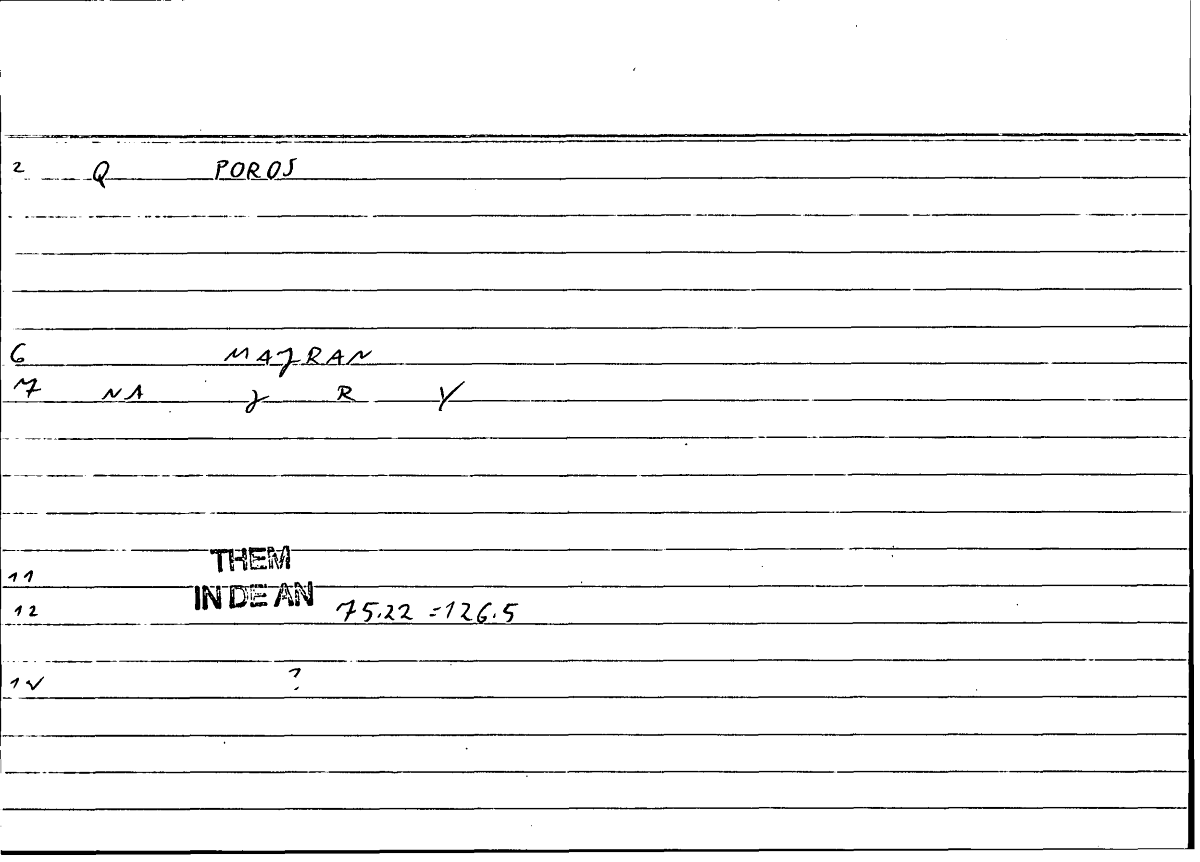 2 Q POROS
6 MAJRAN
7 NA J R Y
11 THEM
12 IN DE AN 75.22 =126.5
?